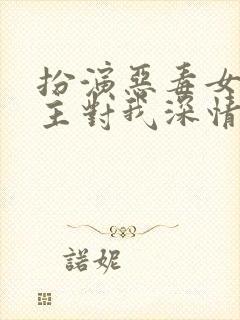 扮演惡毒女
主對我深情
諾妮